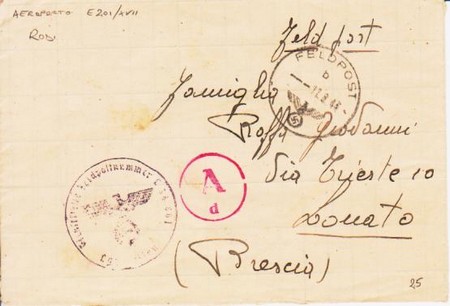 AEROPORTO E201/XVII
RODI
Feld post
FELDPOST
b
Famiglia
Roffa Giovanni
Via Trieste 10
Lonato
(Brescia)
A
d
25